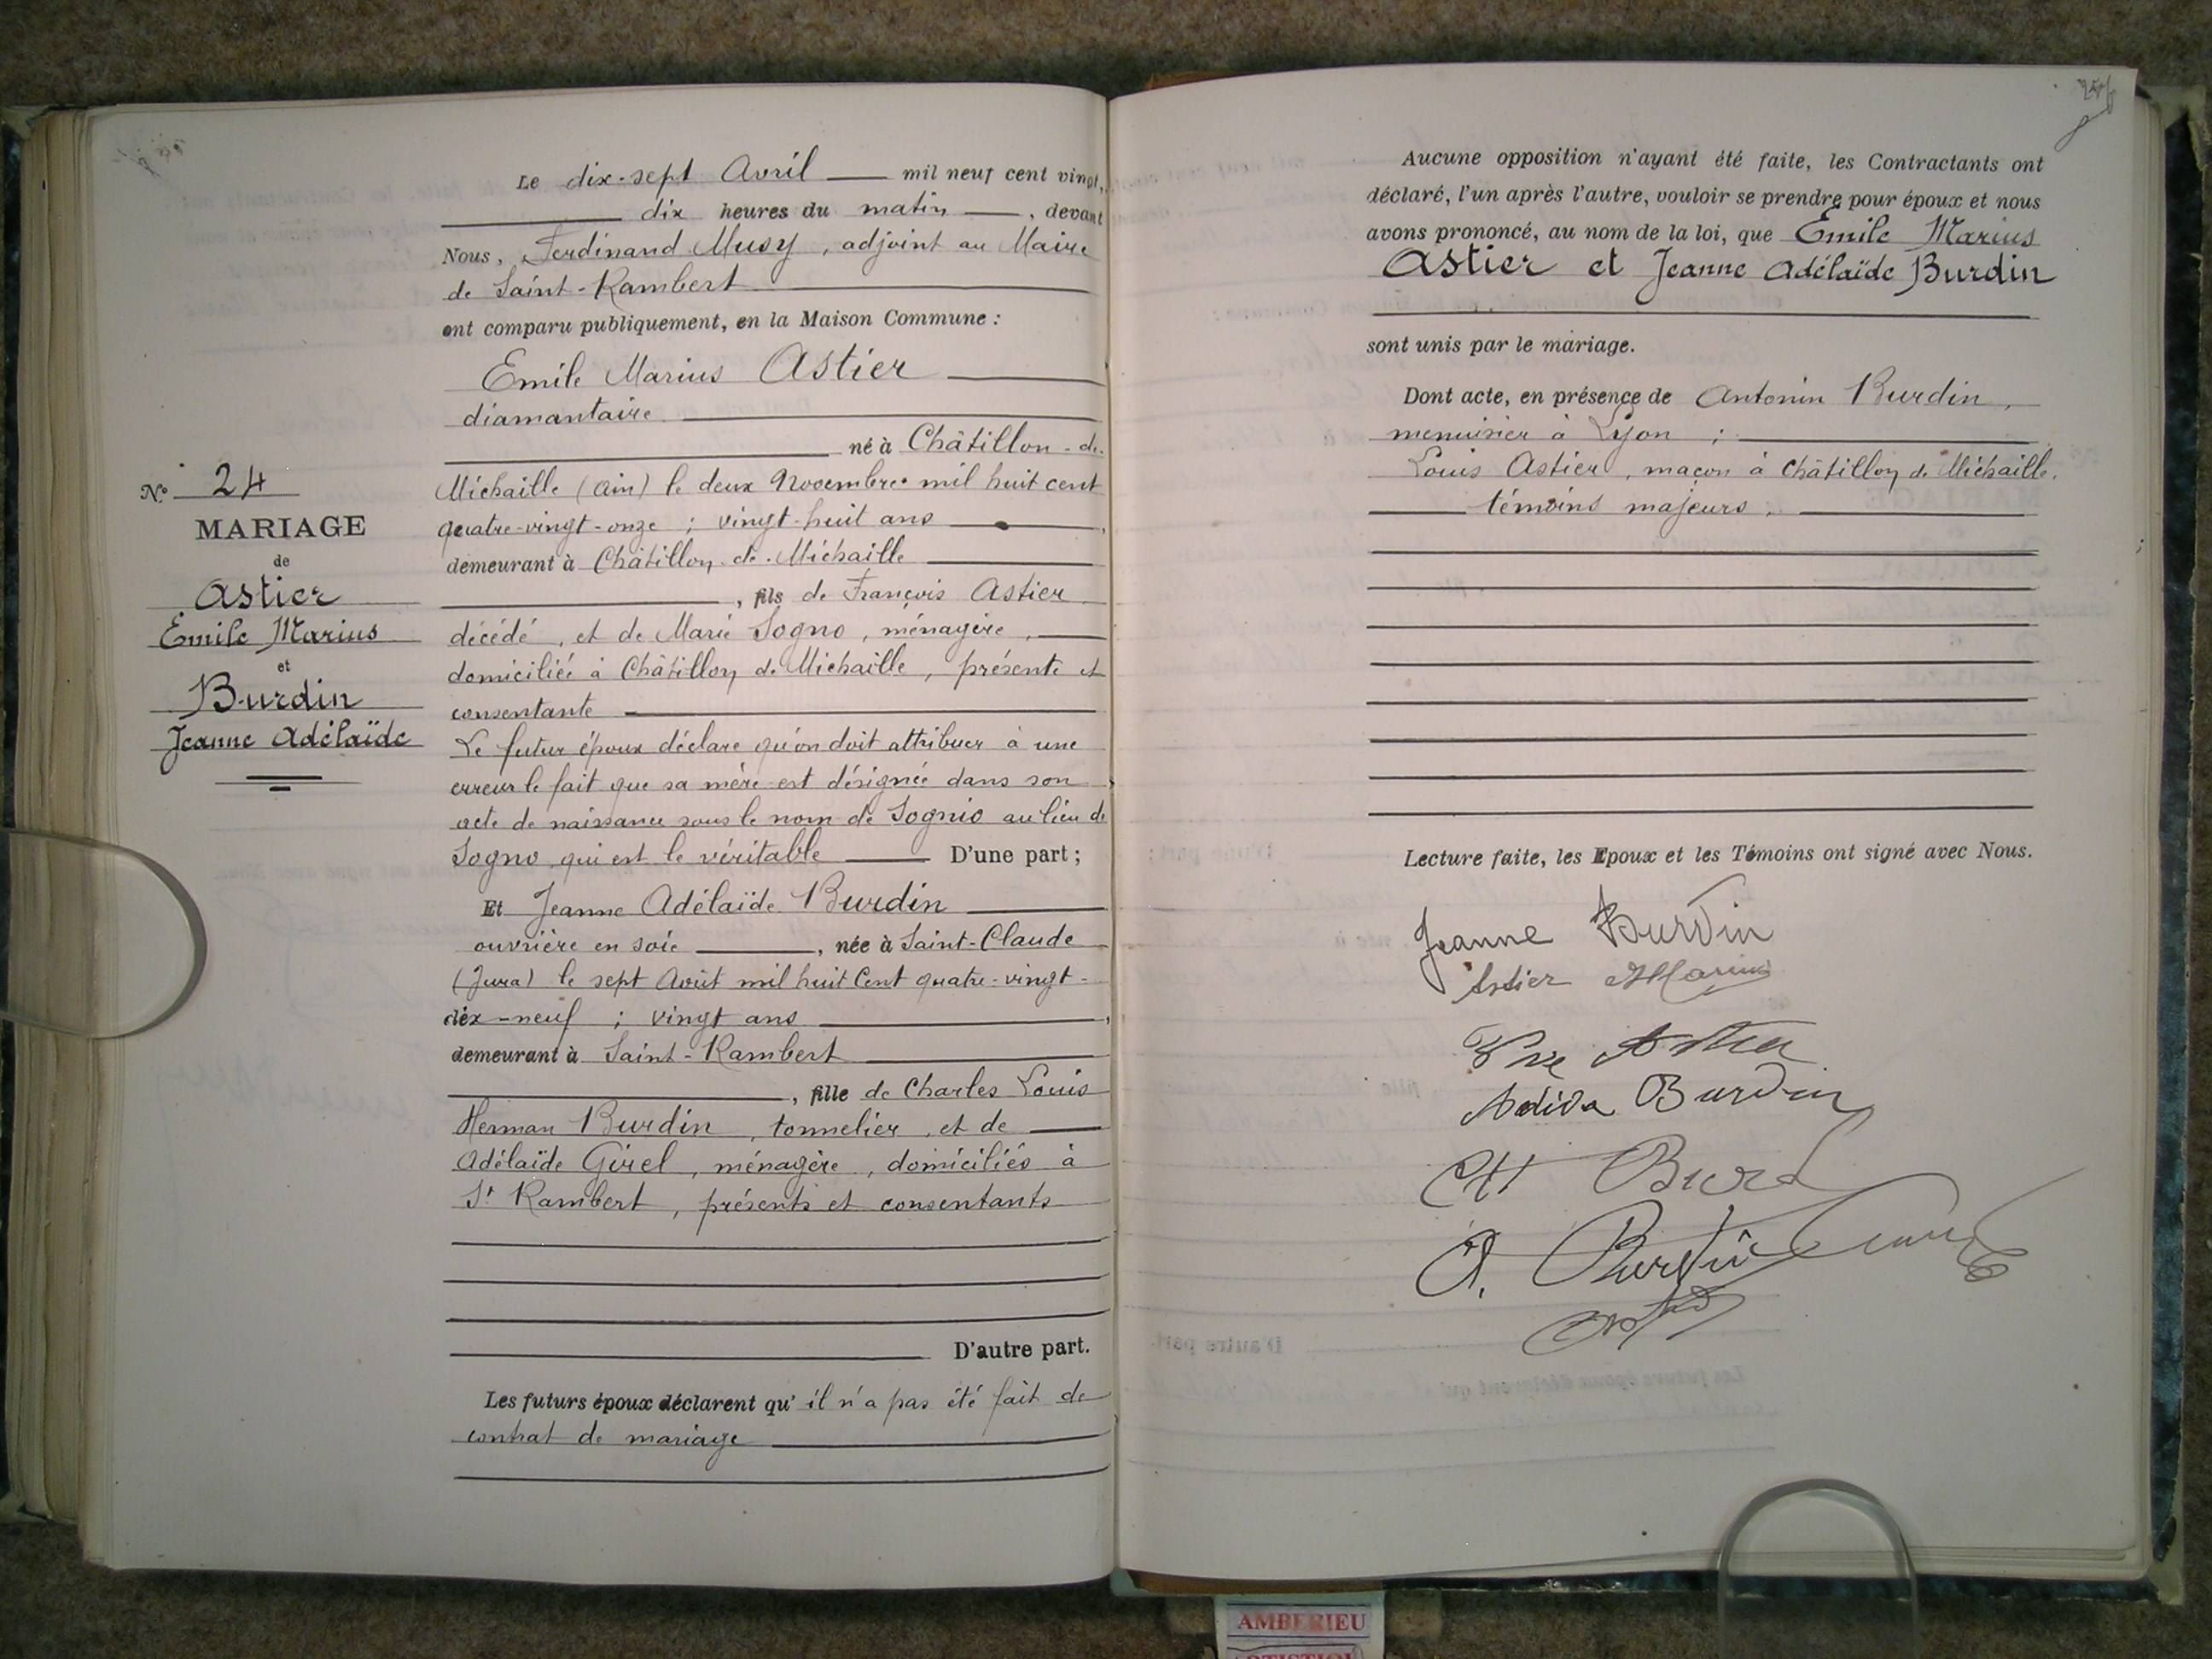 Le dix-sept Avril mil neuf cent vingt,
dix heures du matin, devant
Nous, Ferdinand Musy, adjoint au Maire
de Saint-Rambert
ont comparu publiquement, en la Maison Commune :
Emile Marius Astier
diamantaire
né à Châtillon-de-
Michaille (Ain) le deux Novembre mil huit cent
quatre-vingt-onze ; vingt-huit ans,
demeurant à Châtillon-de-Michaille
, fils de François Astier
décédé, et de Marie Sogno, ménagère,
domiciliée à Châtillon de Michaille, présente et
consentante
Le futur époux déclare qu'on doit attribuer à une
erreur le fait que sa mère est désignée dans son
acte de naissance sous le nom de Sognio au lieu de
Sogno qui est le véritable D'une part ;
Et Jeanne Adélaïde Burdin
ouvrière en soie, née à Saint-Claude
(Jura) le sept Août mil huit Cent quatre-vingt-
dix-neuf ; vingt ans,
demeurant à Saint-Rambert
, fille de Charles Louis
Herman Burdin, tonnelier, et de
Adélaïde Girel, ménagère, domiciliés à
St Rambert, présents et consentants
D'autre part.
Les futurs époux déclarent qu'il n'a pas été fait de
contrat de mariage
No 24
MARIAGE
de
Astier
Emile Marius
et
Burdin
Jeanne Adélaïde
Aucune opposition n'ayant été faite, les Contractants ont
déclaré, l'un après l'autre, vouloir se prendre pour époux et nous
avons prononcé, au nom de la loi, que Emile Marius
Astier et Jeanne Adélaïde Burdin
sont unis par le mariage.
Dont acte, en présence de Antonin Burdin,
menuisier à Lyon ;
Louis Astier, maçon à Châtillon de Michaille,
témoins majeurs.
Lecture faite, les Epoux et les Témoins ont signé avec Nous.
Jeanne Burdin
Astier Marius
Vve Astier
Burdin
Burd
A. Burdin
AMBERIEU